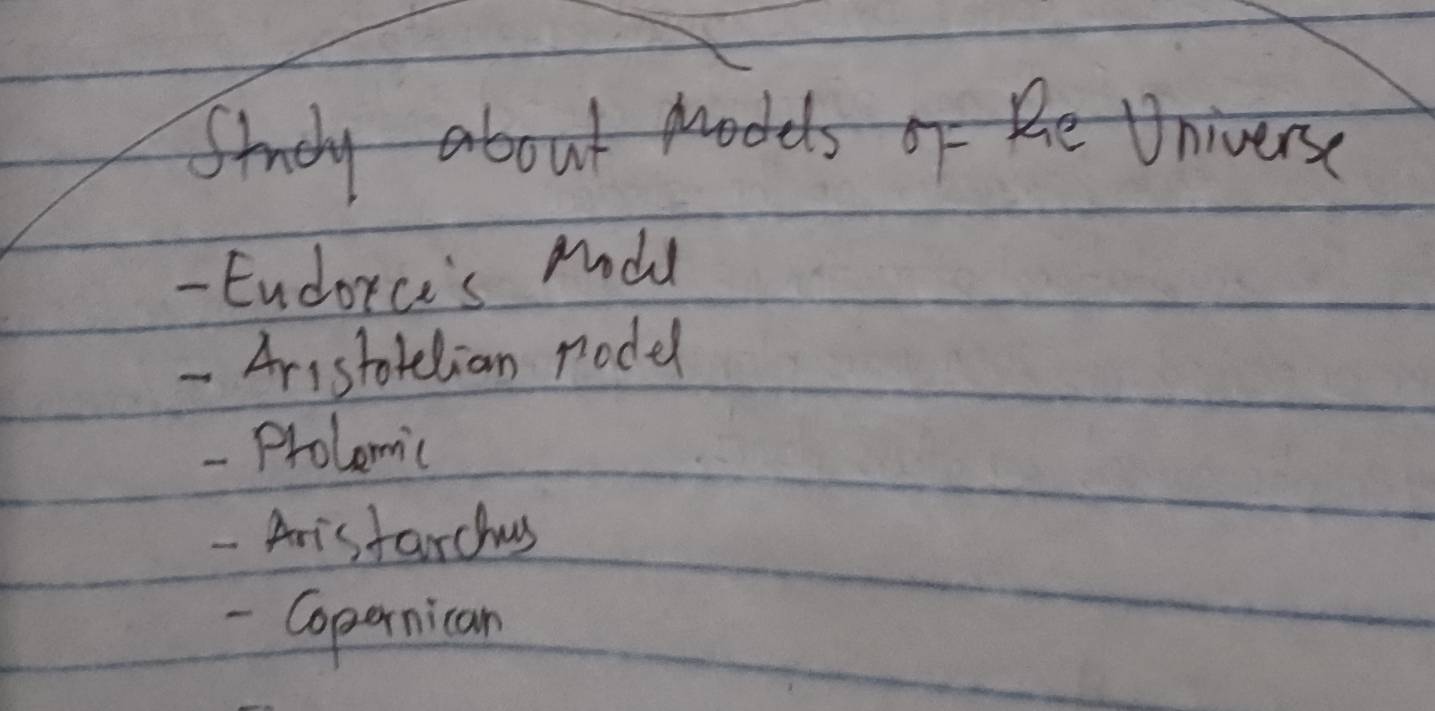 Study about Models of the Universe
- Eudoxce's Model
- Aristotelian Model
- Ptolemic
- Aristarchus
- Copernican